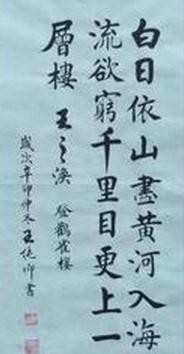 白日依山盡黃河入海
流欲窮千里目更上一
層樓 王之渙 登鸛雀樓
歲次辛卯仲冬王
書